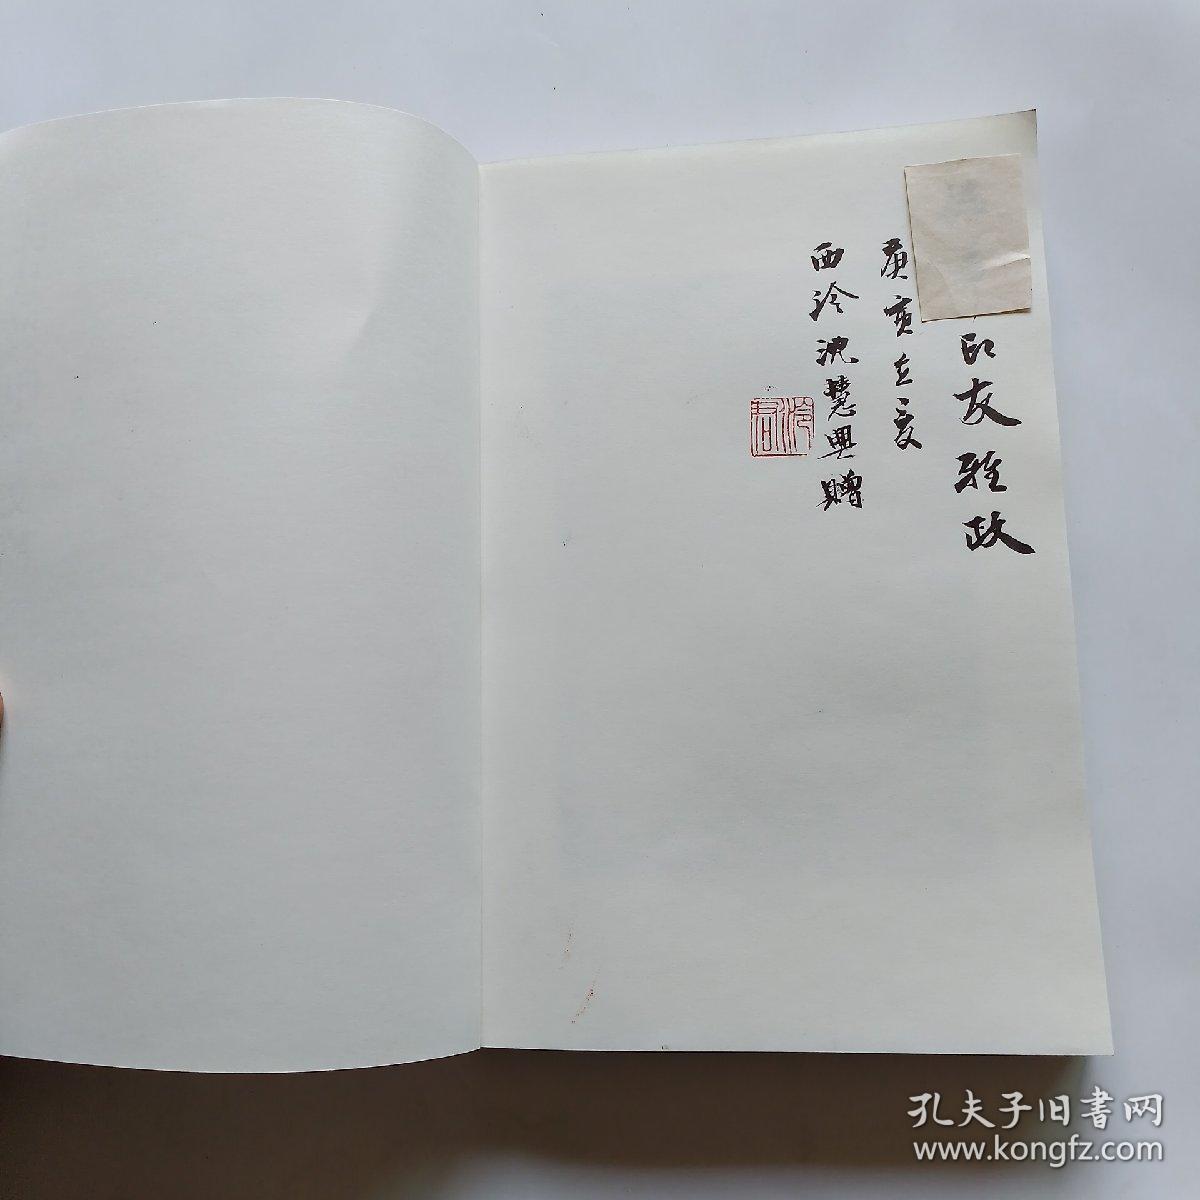 印友雅政
庚寅立夏
西泠沈慧興贈
孔夫子旧书网
www.kongfz.com